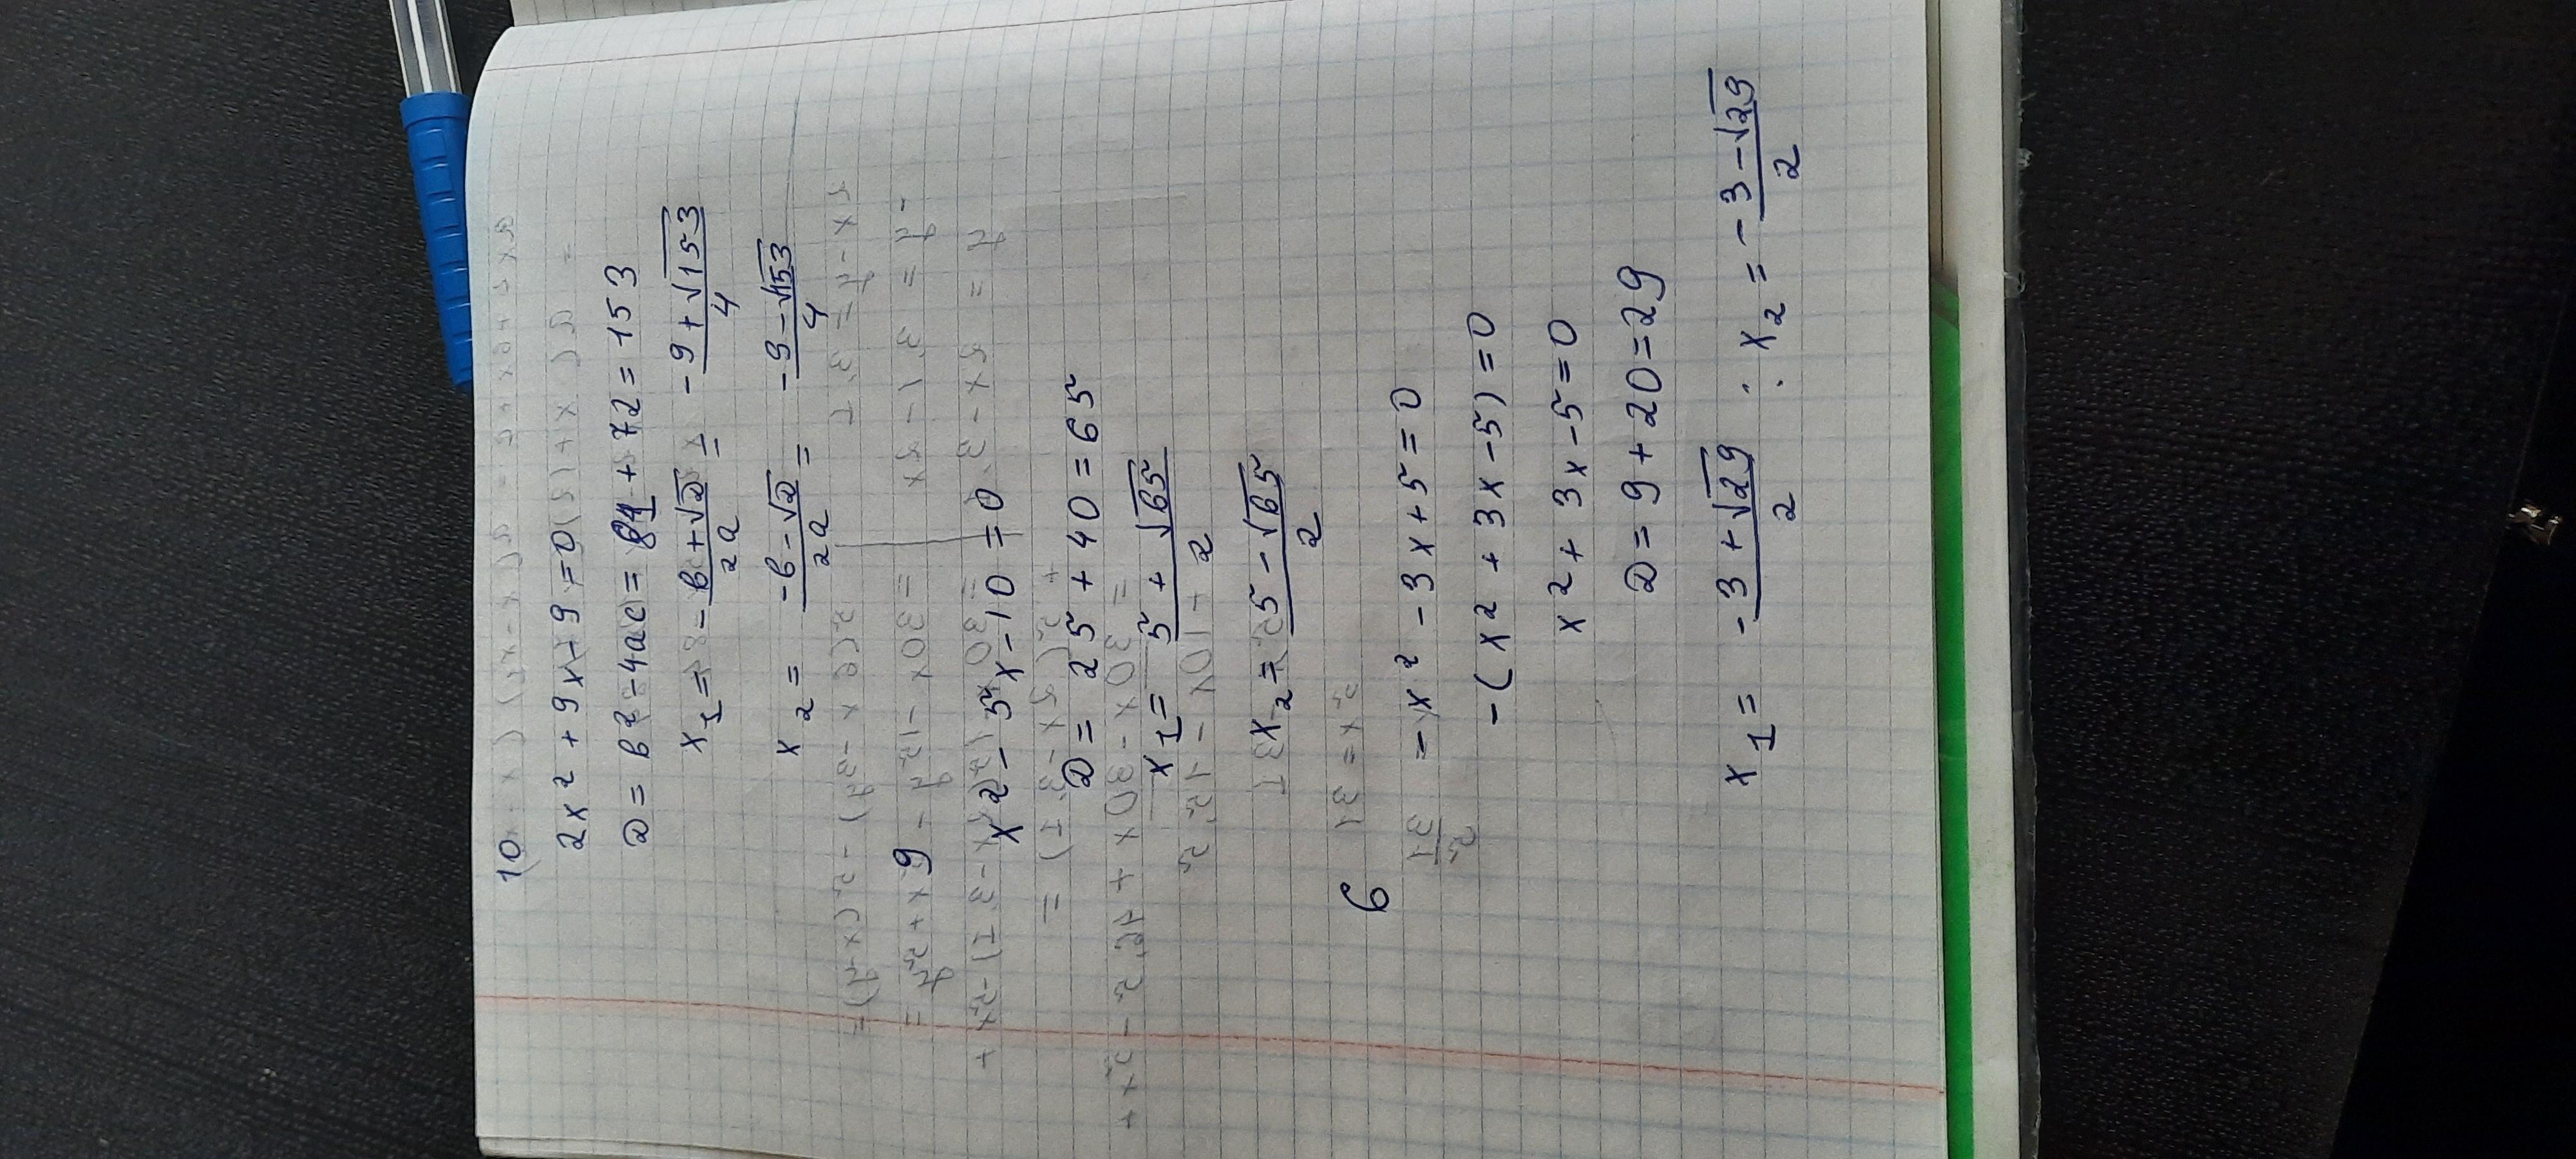 10
2x² + 9x - 9 = 0
D = b² - 4ac = 81 + 72 = 153
x₁ = -b + √D / 2a = -9 + √153 / 4
x₂ = -b - √D / 2a = -9 - √153 / 4
9
x² - 5x - 10 = 0
D = 25 + 40 = 65
x₁ = 5 + √65 / 2
x₂ = 5 - √65 / 2
6
-x² - 3x + 5 = 0
-(x² + 3x - 5) = 0
x² + 3x - 5 = 0
D = 9 + 20 = 29
x₁ = -3 + √29 / 2 ; x₂ = -3 - √29 / 2